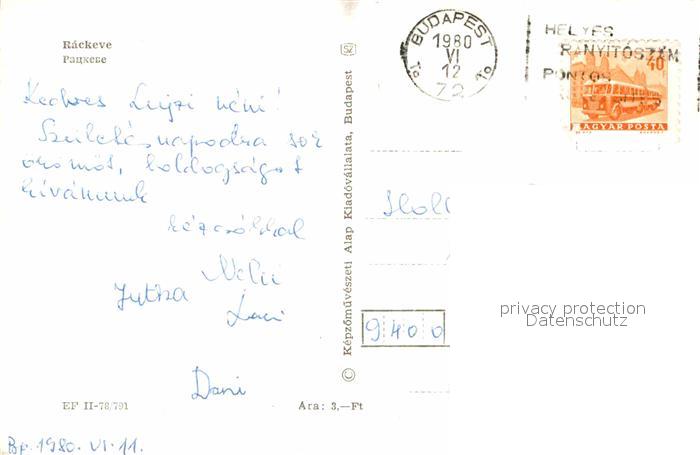 Ráckeve
Рацкеве
Kedves Lujzi néni!
Születésnapodra sok
örömöt, boldogságot
kívánunk
kézcsókkal
Jutka
Laci
Dani
EF II-78/791
Ára: 3,—Ft
Bp. 1980. VI. 11.
© Képzőművészeti Alap Kiadóvállalata, Budapest
BUDAPEST
1980
VI
12
72
HELYES
IRÁNYÍTÓSZÁM
PONTOS
40f
MAGYAR POSTA
9400
privacy protection
Datenschutz